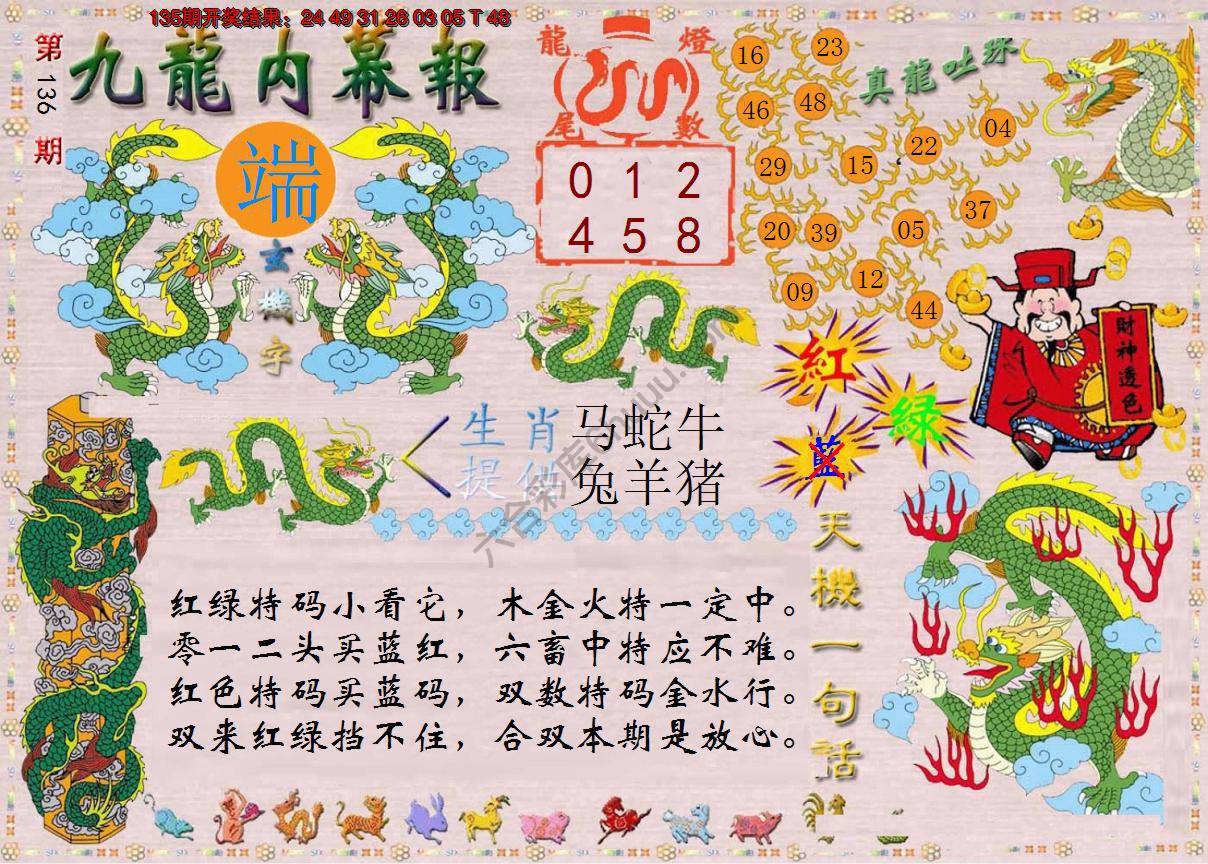 135期开奖结果：24 49 31 26 03 05 T 48
第136期
九龍內幕報
端
玄機字
龍燈
尾數
0 1 2
4 5 8
真龍吐珠
16
23
46
48
04
22
29
15
37
20
39
05
12
09
44
財神透色
紅
綠
藍
生肖
提供
马蛇牛
兔羊猪
天機一句話
红绿特码小看它，木金火特一定中。
零一二头买蓝红，六畜中特应不难。
红色特码买蓝码，双数特码金水行。
双来红绿挡不住，合双本期是放心。